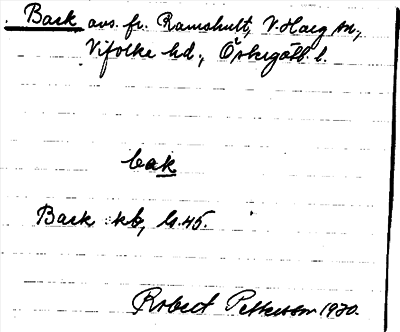 Back avs. fr. Ramshult, V. Harg sn,
Vifolke hd., Östergötl. l.
bak
Back kb, bl. 45.
Robert Pettersson 1930.